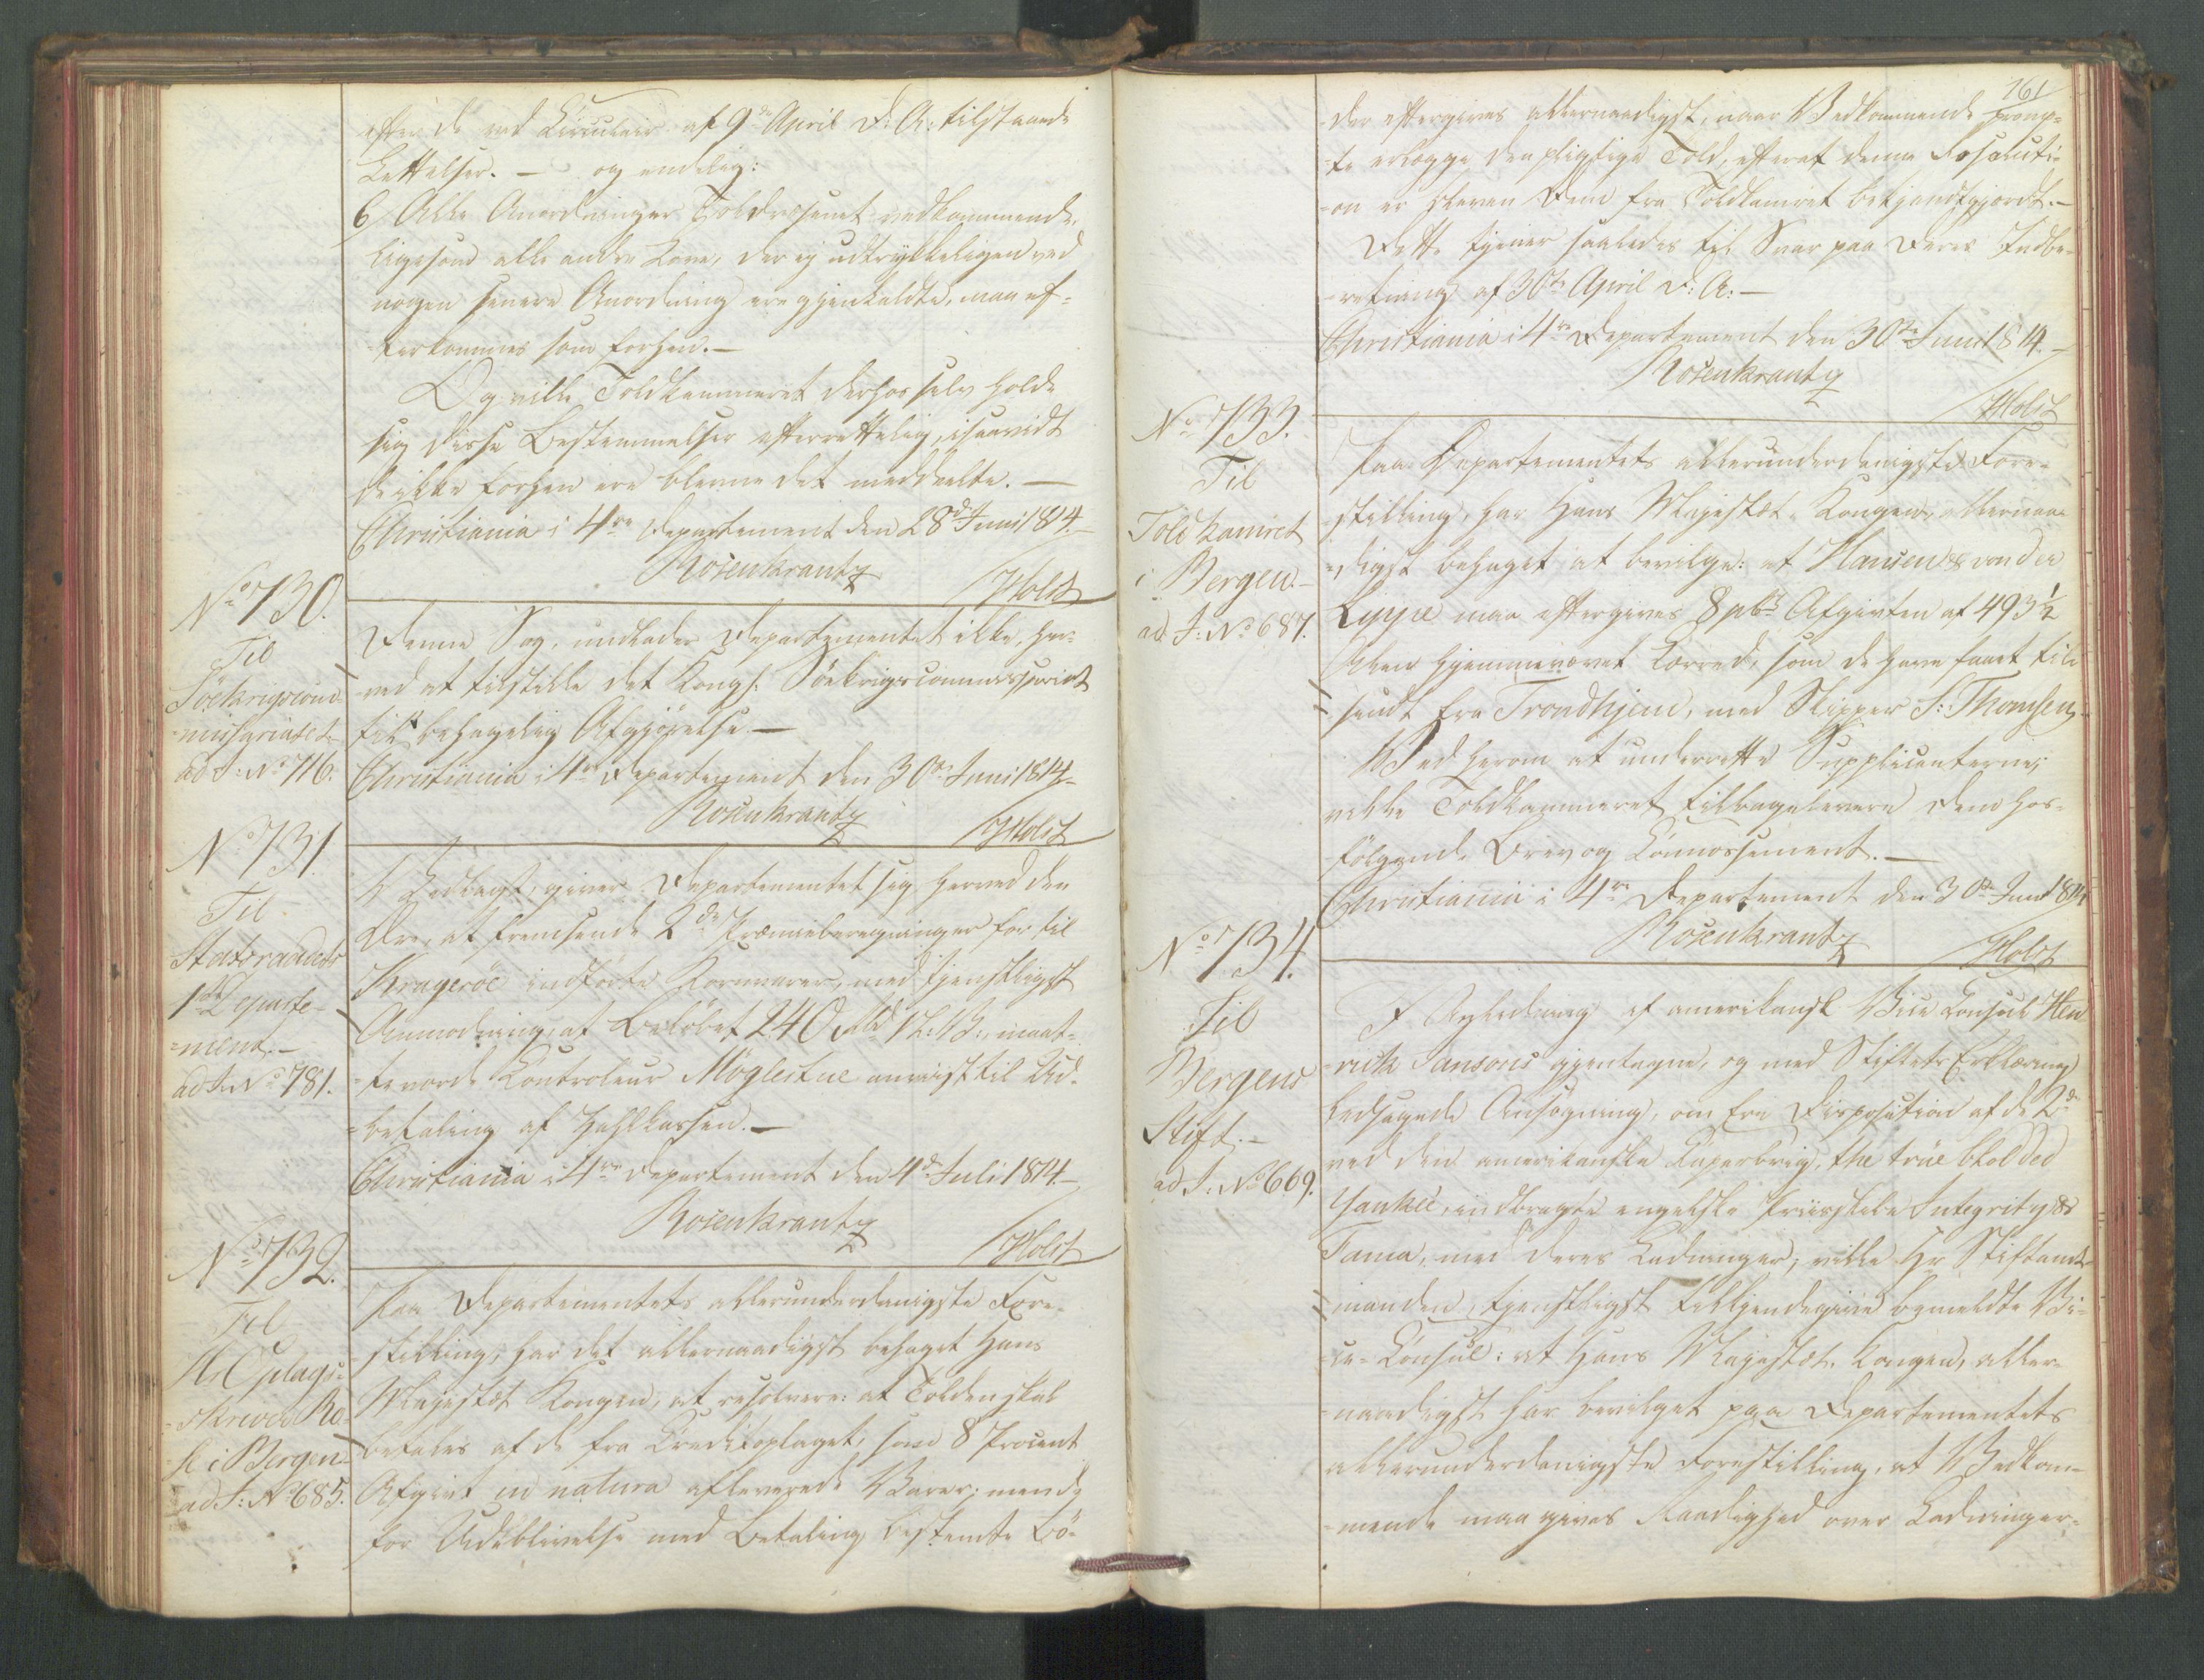 efter de ved Circulair af 9de April d: A: tilstaaede
Lettelser. — og endelig:
6/ Alle Anordninger Toldvæsenet vedkommende,
ligesom alle andre Love, der ej udtrykkeligen ved
nogen senere Anordning ere gjenkaldte, maa ef-
terkommes som forhen. —
Og ville Toldkammeret derhos selv holde
sig disse Bestemmelser efterrettelig, isaavidt
de ikke forhen ere blevne det meddeelte. —
Christiania i 4re Departement den 28de Juni 1814. —
Rosenkrantz
/Holst
No 730.
Til
Söekrigscom-
misariatet
ad J: No 716.
Denne Sag, undlader Departementet ikke, her-
ved at tilstille det Kongl: Söekrigscommissariat
til behagelig Afgjörelse. —
Christiania i 4re Departement den 30te Juni 1814. —
Rosenkrantz
/Holst
No 731.
Til
Statsraadets
1ste Departe-
ment. —
ad J: No 781.
Vedlagt, giver Departementet sig herved den
Ære, at fremsende 2de Præmieberegninger for til
Krageröe indförte Kornvarer, med tjenstligst
Anmodning, at Belöbet 240 Rbd N: V:, maat-
te vorde Controleur Möglestue anviist til Ud-
betaling af Zahlkassen. —
Christiania i 4re Departement den 4de Juli 1814 —
Rosenkrantz
/Holst
No 732.
Til
Hr Oplags-
skriver Ro-
i Bergen
ad J: No 685.
Paa Departementets allerunderdanigste Fore-
stilling, har det allernaadigst behaget Hans
Majestæt Kongen, at resolvere: at Tolden skal
betales af de fra Creditoplaget, som 8 Procent
Afgivt in natura afleverede Varer; men de
for Udeblivelse med Betaling bestemte Bö-
161
der eftergives allernaadigst, naar Vedkommende promp-
te erlægge den pligtige Told, efterat denne Resoluti-
on er bleven dem fra Toldkamret bekjendtgjordt. —
Dette tjener saaledes til Svar paa Deres Indbe-
retning af 30te April d: A: —
Christiania i 4re Departement den 30te Juni 1814. —
Rosenkrantz
/Holst
No 733.
Til
Toldkamret
i Bergen —
ad J: No 687.
Paa Departementets allerunderdanigste Fore-
stilling, har Hans Majestæt Kongen, allernaa-
digst behaget at bevilge: at Hansen & von der
Lippe maa eftergives 8 pCt Afgivten af 493 ½
Alen hjemmevævet Lærred, som de have faaet til-
sendt fra Trondhjem, med Skipper S: Thomsen.
Ved herom at underrette Supplicanterne,
ville Toldkammeret tilbagelevere dem hos-
fölgende Brev og Connossement. —
Christiania i 4re Departement den 30te Juni 1814
Rosenkrantz
/Holst
No 734.
Til
Bergens
Stift. —
ad J: No 669.
I Anledning af amerikansk Vice Consul Hen-
rich Jansons gjentagne, og med Stiftets Erklæring
ledsagede Ansögning, om fri Disposition af de 2de
ved den amerikanske Kaperbrig, the true blooded
Yankee, indbragte engelske Priisskibe Integrity &
Tama, med deres Ladninger; ville Hr Stiftamt-
manden, tjenstligst tilkjendegive bemeldte Vi-
ce-Consul: at Hans Majestæt Kongen, aller-
naadigst har bevilget paa Departementets
allerunderdanigste Forestilling, at Vedkom-
mende maa gives Raadighed over Ladninger-